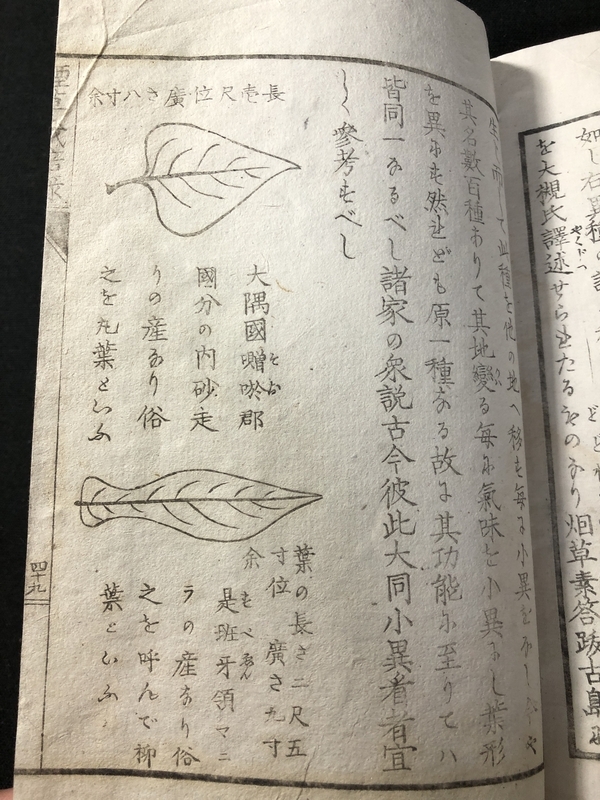 如し右異種の
を大槻氏譯述せられたるものあり烟草素答跋古島
生而して此種を他の地へ移す毎に小異を
其名數百種ありて其地變る毎に氣味も小異にし葉形
を異にも然れども原一種なる故に其功能に至りてハ
皆同一なるべし諸家の衆説古今彼此大同小異看者宜
しく參考すべし
長壱尺位廣さ八寸余
大隅國囎唹郡
國分の内砂走
りの産なり俗
之を丸葉といふ
葉の長さ二尺五
寸位廣さ九寸
余
是班牙領マニ
ラの産なり俗
之を呼んで柳
葉といふ
四十九